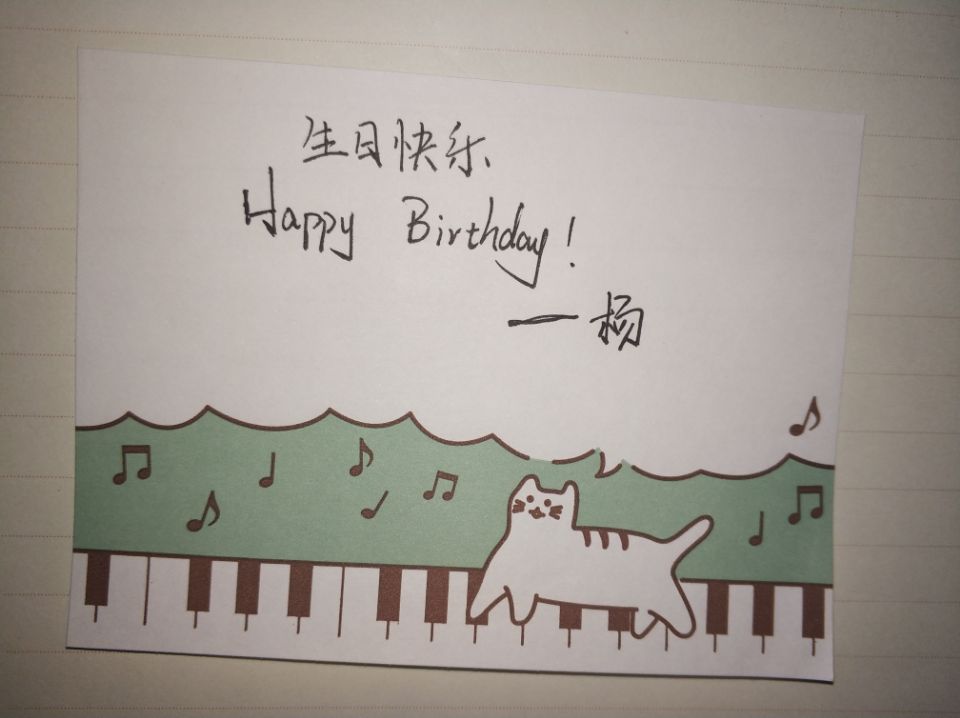 生日快乐
Happy Birthday!
—杨